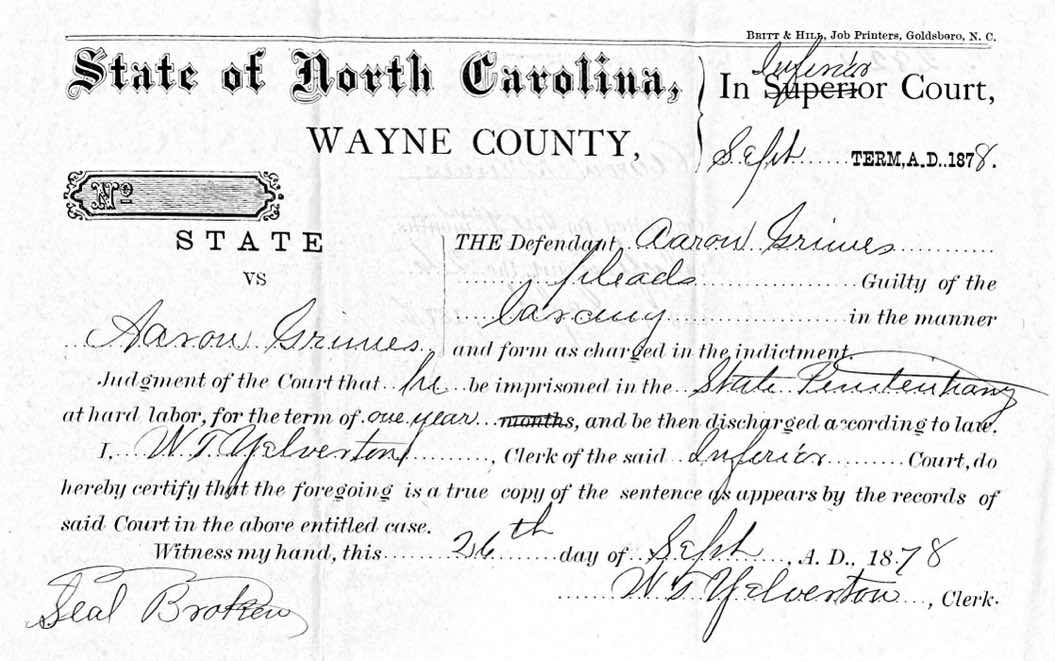 BRITT & HILL, Job Printers, Goldsboro, N. C.
State of North Carolina,
WAYNE COUNTY,
Inferior
In Superior Court,
Sept TERM, A. D. 1878.
No
STATE
VS
Aaron Grimes
THE Defendant Aaron Grimes
pleads Guilty of the
Larceny in the manner
and form as charged in the indictment.
Judgment of the Court that he be imprisoned in the State Penitentiary
at hard labor, for the term of one year months, and be then discharged according to law.
I, W T Yelverton, Clerk of the said Inferior Court, do
hereby certify that the foregoing is a true copy of the sentence as appears by the records of
said Court in the above entitled case.
Witness my hand, this 26th day of Sept, A. D., 1878
W T Yelverton, Clerk.
Seal Broken